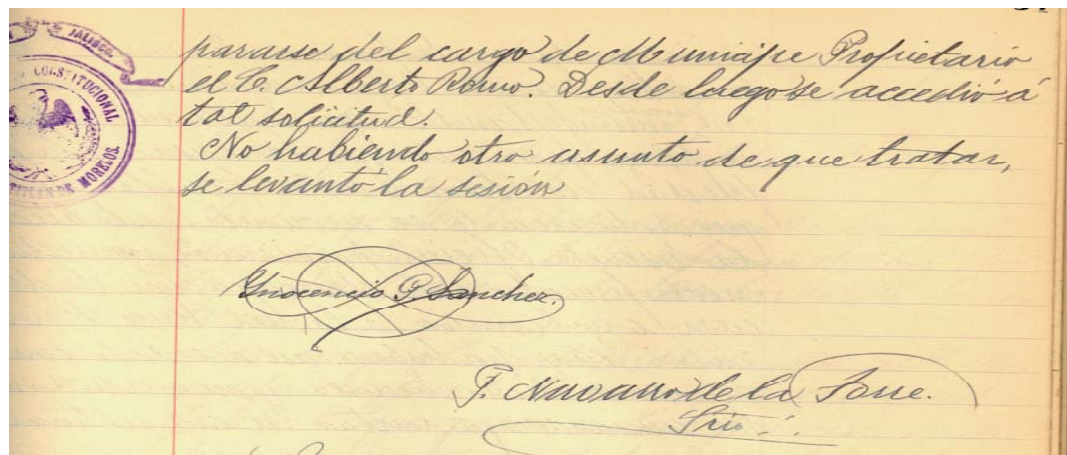 JALISCO.
CONSTITUCIONAL
DE MORELOS.
pararse del cargo de Municipe Propietario
el C. Alberto Romo. Desde luego se accedió á
tal solicitud.
No habiendo otro asunto de que tratar,
se levantó la sesión
Inocencio G. Sanchez.
F. Navarro de la Torre.
Srio.